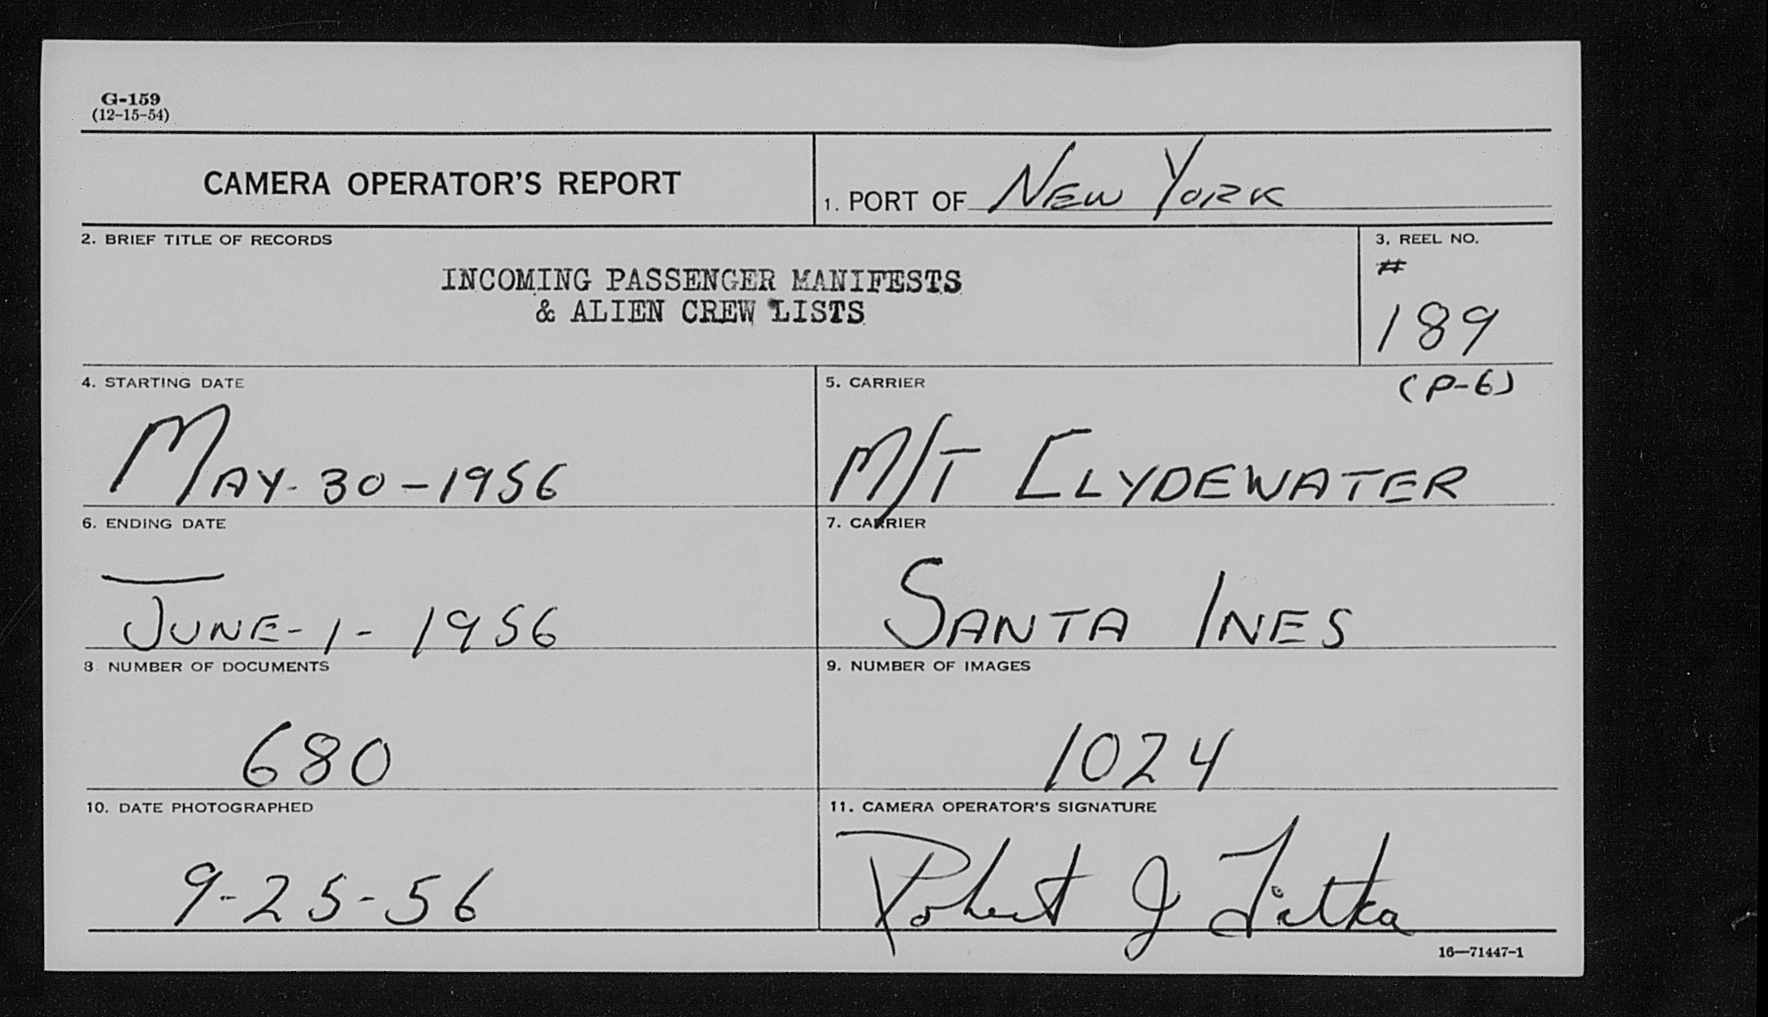 G-159
(12-15-54)
CAMERA OPERATOR'S REPORT
1. PORT OF NEW YORK
2. BRIEF TITLE OF RECORDS
INCOMING PASSENGER MANIFESTS
& ALIEN CREW LISTS
3. REEL NO.
#
189
(P-6)
4. STARTING DATE
MAY-30-1956
5. CARRIER
M/T CLYDEWATER
6. ENDING DATE
JUNE-1-1956
7. CARRIER
SANTA INES
8 NUMBER OF DOCUMENTS
680
9. NUMBER OF IMAGES
1024
10. DATE PHOTOGRAPHED
9-25-56
11. CAMERA OPERATOR'S SIGNATURE
Robert J
16—71447-1